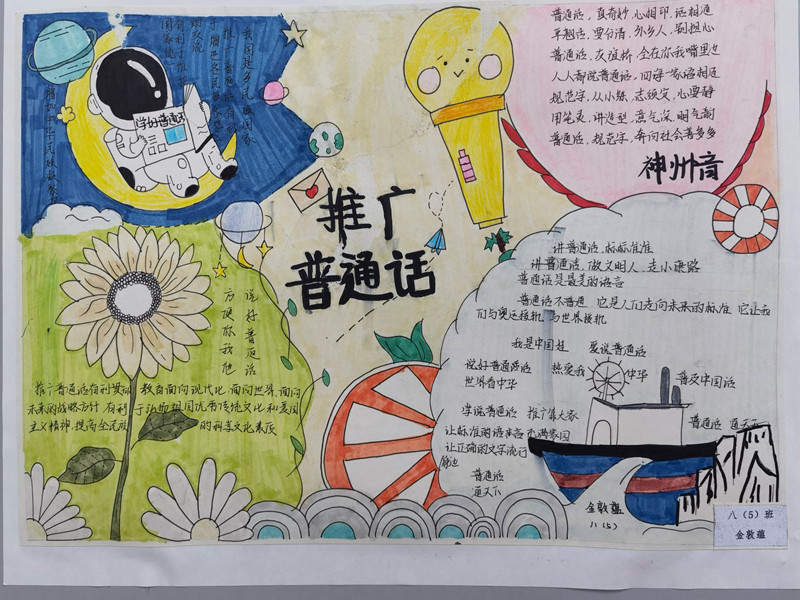 我国是多民族国家
推广普通话有利
学好普通话
推广
普通话
普通话，真奇妙，心相印，话相通
平翘舌，要分清，外乡人，别担心
普通话，友谊桥，全在你我嘴里边
人人都说普通话，四海一家话相连
规范字，从小练，志须定，心要静
用笔灵，讲造型，意气深，明气韵
普通话，规范字，奔向社会著多多
神州音
讲普通话，标标准准
讲普通话，做文明人，走小康路
普通话是最美的语言
普通话不普通，它是人们走向未来的标准，它让我
们与奥运接轨，与世界接轨
我是中国娃 爱说普通话
说好普通话
世界看中华
热爱我 中华
普及中国话
学说普通话 推广靠大家
普通话
让标准的语声
让正确的文字流行
普通话
通天下
说好普通话
方便你我他
推广普通话有利贯彻 教育面向现代化，面向世界，面向
未来的战略方针，有利 于弘扬祖国优秀传统文化和爱国
主义精神，提高全民族 的科学文化素质
金敦蕴
八(5)
八（5）班
金敦蕴